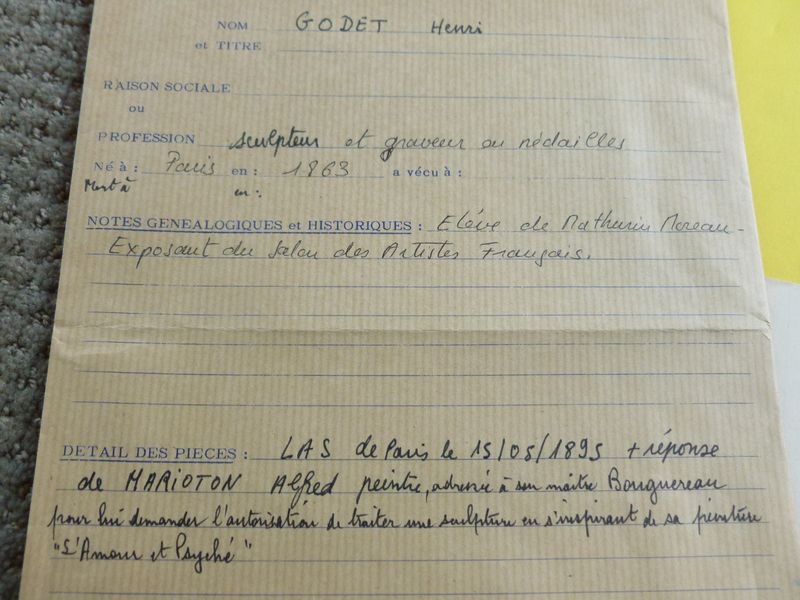 NOM GODET Henri
et TITRE
RAISON SOCIALE
ou
PROFESSION sculpteur et graveur en médailles
Né à : Paris en : 1863 a vécu à :
Mort à en :
NOTES GENEALOGIQUES et HISTORIQUES : Elève de Mathurin Moreau -
Exposant du Salon des Artistes Français.
DETAIL DES PIECES : LAS de Paris le 15/05/1895 + réponse
de MARIOTON Alfred peintre, adressée à son maître Bouguereau
pour lui demander l'autorisation de traiter une sculpture en s'inspirant de sa peinture
"L'Amour et Psyché"